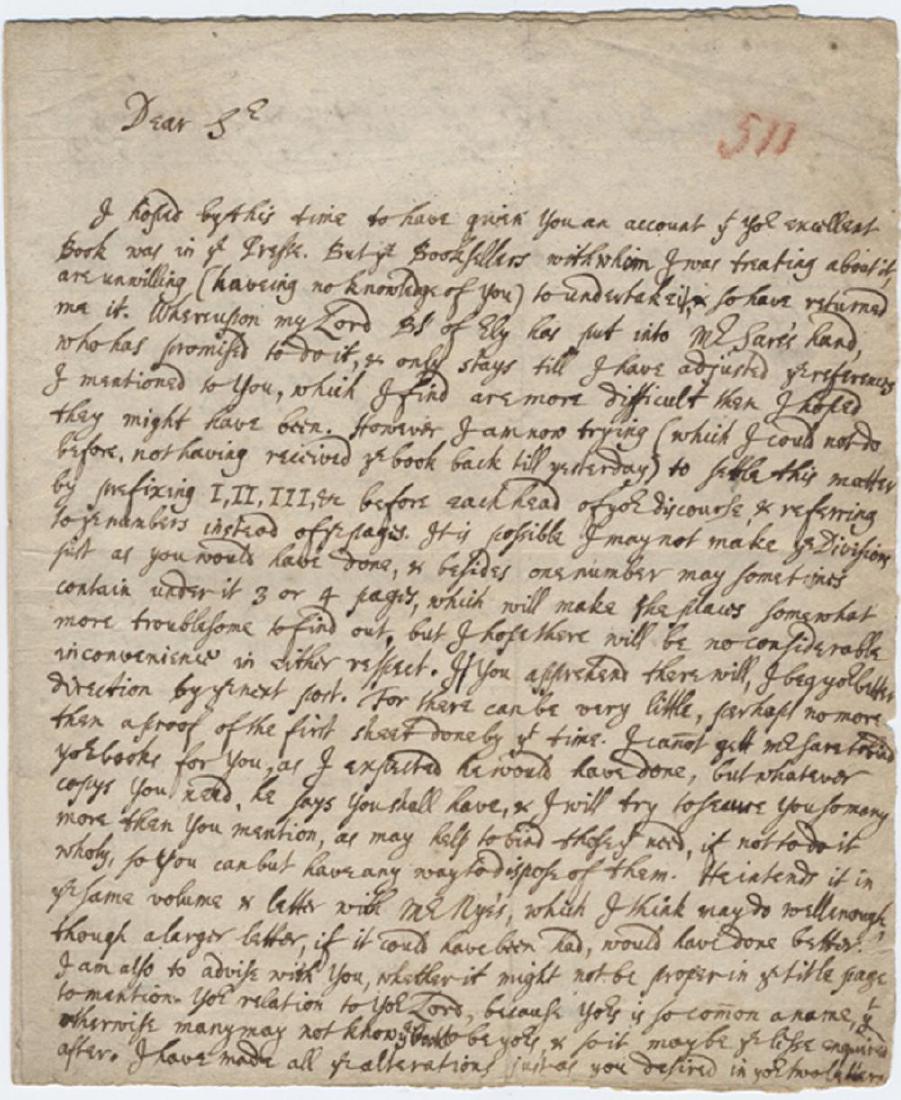 Dear Sr
511
I hoped by this time to have given you an account yt yor excellent
Book was in ye Presse. But ye Booksellers with whom I was treating about it,
are unwilling (haveing no knowledge of you) to undertake it, & so have returned
me it. Whereupon my Lord Bp of Ely has put into Mr Sare's hand,
who has promised to do it, & only stays till I have adjusted ye references
I mentioned to you, which I find are more difficult then I hoped
they might have been. However I am now trying (which I could not do
before, not having received ye book back till yesterday) to settle this matter
by prefixing I, II, III, &c before each head of yor discourse, & referring
to ye numbers instead of ye pages. It is possible I may not make ye Divisions
just as you would have done, & besides one number may sometimes
contain under it 3 or 4 pages, which will make the places somewhat
more troublesome to find out, but I hope there will be no considerable
inconvenience in either respect. If you apprehend there will, I beg yor better
direction by ye next post. For there can be very little, perhaps no more
then a proof of the first sheet done by yt time. I cannot gett Mr Sare to bind
yor books for you, as I expected he would have done, but whatever
copys you need, he says you shall have, & I will try to secure you so many
more then you mention, as may help to bind those yt need, if not to do it
wholy, so you can but have any way to dispose of them. He intends it in
ye same volume & letter with Mr Nye's, which I think may do well enough,
though a larger letter, if it could have been had, would have done better.
I am also to advise with you, whether it might not be proper in ye title page
to mention yor relation to yor Lord, because yors is so common a name, yt
otherwise many may not know ye book to be yors & so it may be ye lesse enquired
after. I have made all ye alterations just as you desired in yor two letters